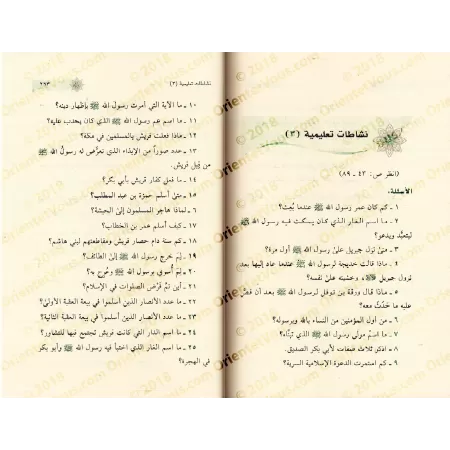 نشاطات تعليمية (٣)
(انظر ص: ٤٣ ـ ٨٩)
الأسئلة:
١ ـ كم كان عمر رسول الله ﷺ عندما بُعث؟
٢ ـ ما اسم الغار الذي كان يمكث فيه رسول الله ﷺ
ليتعبَّد ويدعو؟
٣ ـ متى نزل جبريل على رسول الله ﷺ أول مرة؟
٤ ـ ماذا قالت خديجة لرسول الله ﷺ عندما عاد إليها بعد
نزول جبريل وخشيته على نفسه؟
٥ ـ ماذا قال ورقة بن نوفل لرسول الله ﷺ بعد أن قصَّ
عليه ما حَدَث معه؟
٦ ـ من أول المؤمنين من النساء بالله وبرسوله؟
٧ ـ ما اسم مولى رسول الله ﷺ الذي تبنَّاه؟
٨ ـ اذكر ثلاث صفات لأبي بكر الصديق.
٩ ـ كم استمرت الدعوة الإسلامية السرية؟
نشاطات تعليمية (٣)
٢٦٣
١٠ ـ ما الآية التي أمرت رسول الله ﷺ بإظهار دينه؟
١١ ـ ما اسم عم رسول الله ﷺ الذي كان يحدب عليه؟
١٢ ـ ماذا فعلت قريش بالمسلمين في مكة؟
١٣ ـ حدد صوراً من الإيذاء الذي تعرَّض له رسولُ الله ﷺ
من قِبل قريش.
١٤ ـ ما فعل كفار قريش بأبي بكر؟
١٥ ـ متى أسلم حمزة بن عبد المطلب؟
١٦ ـ لماذا هاجر المسلمون إلى الحبشة؟
١٧ ـ كيف أسلم عمر بن الخطاب؟
١٨ ـ كم سنة دام حصار قريش ومقاطعتهم لبني هاشم؟
١٩ ـ لِمَ خرج رسول الله ﷺ إلى الطائف؟
٢٠ ـ لِمَ أُسري برسول الله ﷺ وعُرج به؟
٢١ ـ أين تم فَرْض الصلوات في الإسلام؟
٢٢ ـ ما عدد الأنصار الذين أسلموا في بيعة العقبة الأولى؟
٢٣ ـ ما عدد الأنصار الذين أسلموا في بيعة العقبة الثانية؟
٢٤ ـ ما اسم الدار التي كانت قريش تجتمع فيها للتشاور؟
٢٥ ـ ما اسم الغار الذي اختبأ فيه رسول الله ﷺ وأبو بكر
في الهجرة؟
© 2018
Orientervous.com